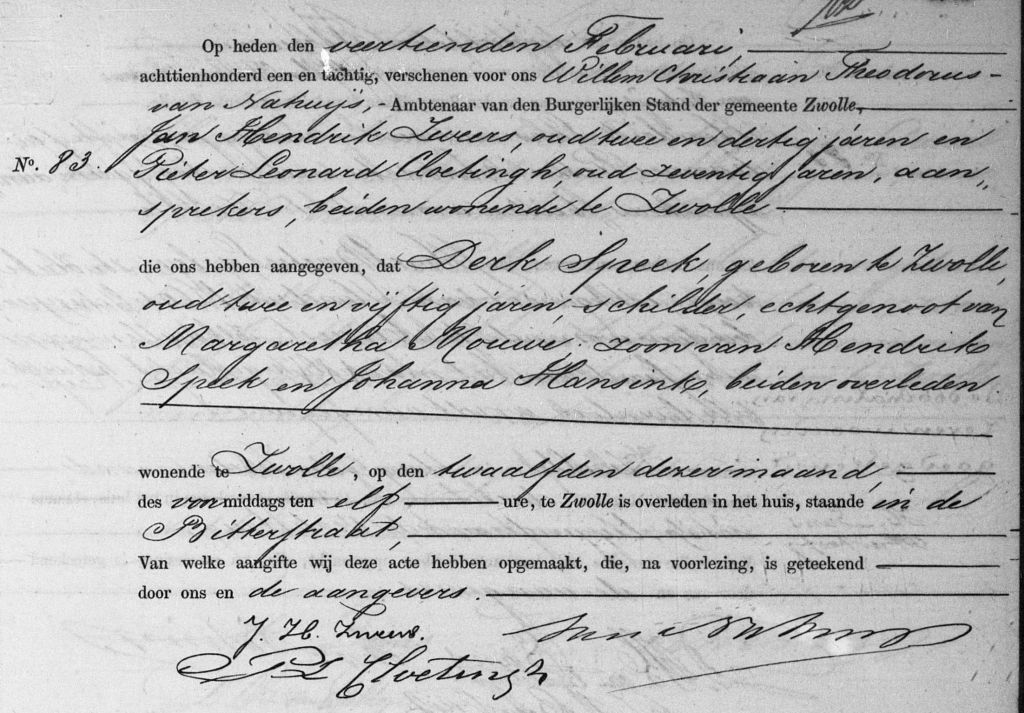 Op heden den veertienden Februari,
achttienhonderd een en tachtig, verschenen voor ons Willem Christiaan Theodorus
van Nahuijs, - Ambtenaar van den Burgerlijken Stand der gemeente Zwolle,
Jan Hendrik Zweers, oud twee en dertig jaren en
No. 83. Pieter Leonard Cloetingh, oud zeventig jaren, aan„
sprekers, beiden wonende te Zwolle
die ons hebben aangegeven, dat Derk Speek, geboren te Zwolle,
oud twee en vijftig jaren, schilder, echtgenoot van
Margaretha Mouwe, zoon van Hendrik
Speek en Johanna Hansink, beiden overleden
wonende te Zwolle, op den twaalfden dezer maand,
des voormiddags ten elf ure, te Zwolle is overleden in het huis, staande in de
Bitterstraat,
Van welke aangifte wij deze acte hebben opgemaakt, die, na voorlezing, is geteekend
door ons en de aangevers.
J. H. Zweers. van Nahuijs
P L Cloetingh